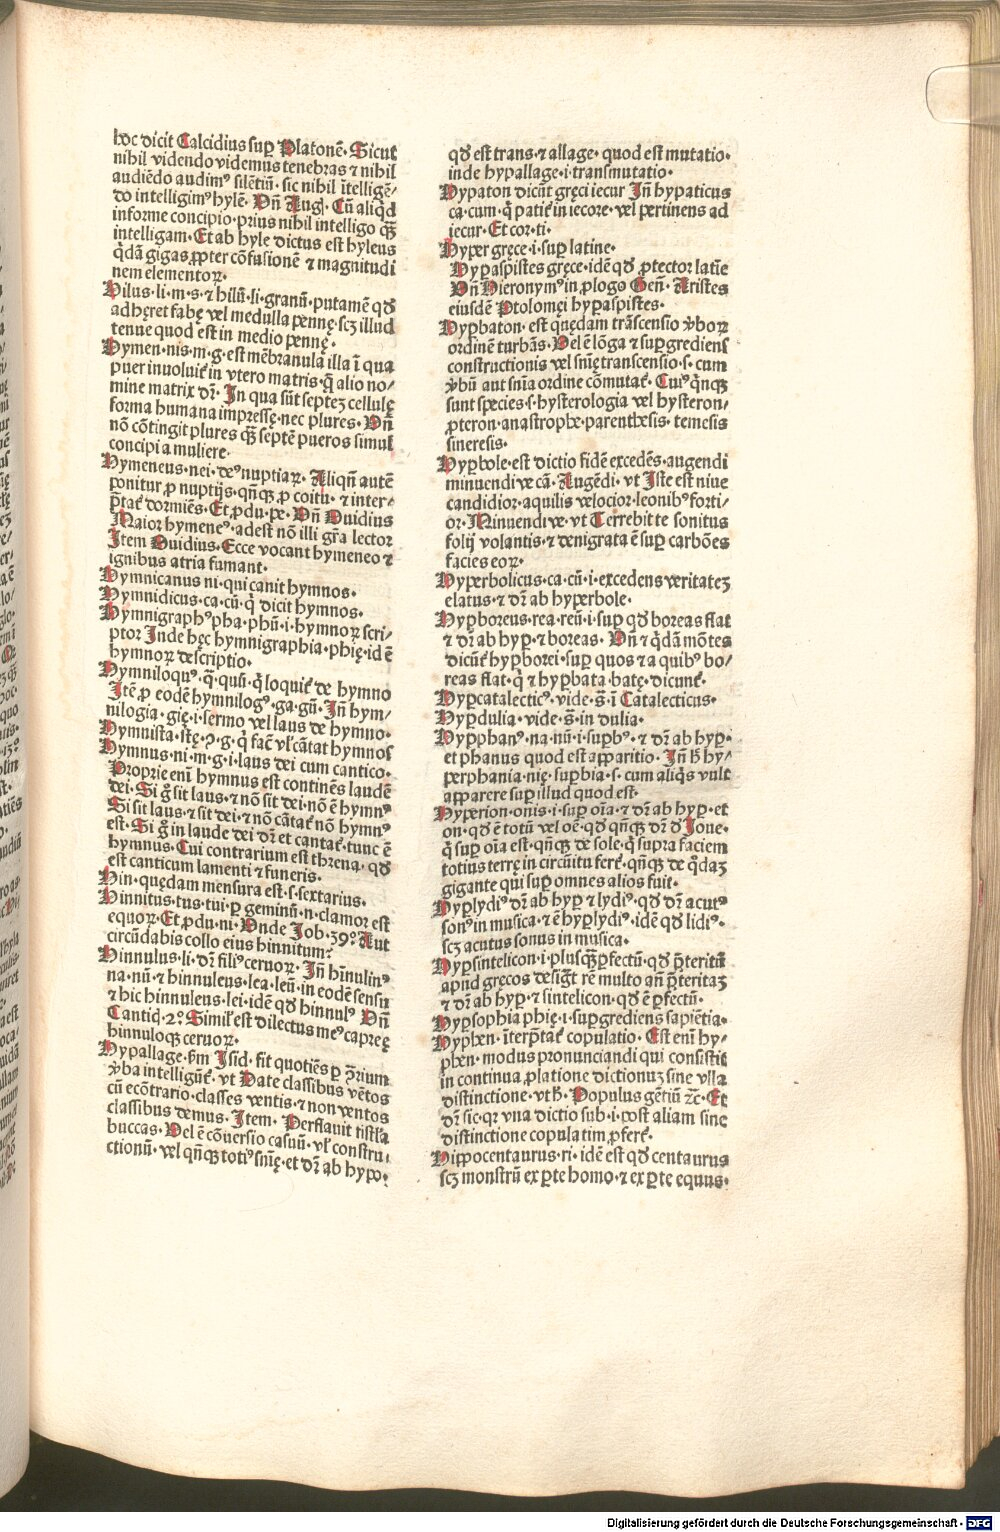 hoc dicit Calcidius sup̱ Platonē· Sicut
nihil videndo videmus tenebras ⁊ nihil
audiēdo audimꝰ silētiū· sic nihil ītelligē/
do intelligimꝰ hylē· Vn̄ Augꝰ· Cū aliq̇d
informe concipio· prius nihil intelligo q̄ꝫ
intelligam· Et ab hyle dictus est hyleus
q̇dā gigas ꝓpter cōfusionē ⁊ magnitudi
nem elementoꝝ·
Hilus· li· m· s· ⁊ hilū· li· granū· putamē qđ
adhęret fabę vel medulla pennę· scꝫ illud
tenue quod est in medio pennę·
Hymen· nis· m· g· est mēbranula illa ī qua
puer inuoluit̄ in vtero matris· q̄ alio no/
mine matrix dr̄· In qua sūt septeꝫ cellulę
forma humana impressę· nec plures· Vn̄
nō cōtingit plures q̄ꝫ septē pueros simul
concipi a muliere·
Hymeneus· nei· deꝰ nuptiaꝝ· Aliqn̄ autē
ponitur ꝓ nuptijs· qn̄qꝫ ꝓ coitu· ⁊ inter/
p̄tat̄ dormiēs· Et ꝓdu· pe· Vn̄ Ouidius
Maior hymeneꝰ· adest nō illi gr̄a lector
Item Ouidius· Ecce vocant hymeneo ⁊
ignibus atria fumant·
Hymnicanus ni· qui canit hymnos·
Hymnidicus· ca· cū· q̇ dicit hymnos·
Hymnigraphꝰ pha· phū· i· hymnoꝝ scri/
ptor Inde hęc hymnigraphia· phię· id ē
hymnoꝝ descriptio·
Hymniloquꝰ· q̄· qū· q̇ loquit̄ de hymno
Itē ꝓ eodē hymnilogꝰ· ga· gū· In̄ hym/
nilogia· gię· i· sermo vel laus de hymno·
Hymnista· stę· ꝯ· g· q̇ fac̄ vl̄ cātat hymnos
Hymnus· ni· m· g· i· laus dei cum cantico·
Proprie enī hymnus est continēs laudē
dei· Si ḡ sit laus· ⁊ nō sit dei· nō ē hymnꝰ
Si sit laus· ⁊ sit dei· ⁊ nō cātat̄ nō hymnꝰ
est· Si ḡ in laude dei dr̄ et cantat̄· tunc ē
hymnus· Cui contrarium est threna· qđ
est canticum lamenti ⁊ funeris·
Hin· quędam mensura est· s· sextarius·
Hinnitus· tus· tui· ꝑ geminū· n· clamor est
equoꝝ· Et ꝓdu· ni· Vnde Job· 39°· Aut
circūdabis collo eius hinnitum?
Hinnulus· li· dr̄ filiꝰ ceruoꝝ· In̄ hīnulinꝰ
na· nū· ⁊ hinnuleus· lea· leū· in eodē sensu
⁊ hic hinnuleus· lei· idē qđ hinnulꝰ Vn̄
Cantic̄· 2°· Simil̄ est dilectus meꝰ capreę
hinnuloqꝫ ceruoꝝ·
Hypallage· ẜm Isid· fit quotiēs ꝑ ꝯ̄rium
v̄ba intelligūt̄· vt Date classibus vētos
cū ecōtrario· classes ventis· ⁊ non ventos
classibus demus· Item· Perflauit fistl̄a
buccas· Vel ē cōuersio casuū· vl̄ constru·
ctionū· vel qn̄qꝫ totiꝰ sn̄ię· et dr̄ ab hypo·
qđ est trans· ⁊ allage· quod est mutatio·
inde hypallage· i· transmutatio·
Hypaton dicūt gręci iecur In̄ hypaticus
ca· cum· q̇ patit̄ in iecore· vel pertinens ad
iecur· Et cor· ti·
Hyper gręce· i· sup̱ latine·
Hyp̱aspistes gręce· idē qđ ꝓtector latīe
Vn̄ Hieronymꝰ in ꝓlogo Gen̄· Aristes
eiusdē Ptolomęi hyp̱aspistes·
Hyp̱baton· est quędam trāscensio v̄boꝝ
ordinē turbās· Vel ē lōga ⁊ sup̱grediens
constructionis vel sn̄ię transcensio· s· cum
v̄bū aut sn̄ia ordine cōmutat̄· Cuiꝰ qn̄qꝫ
sunt species· s· hysterologia vel hysteron/
ꝓteron· anastrophe· parenthesis· temesis
sineresis·
Hyp̱bole· est dictio fidē excedēs· augendi
minuendi ve cā· Augēdi· vt Iste est niue
candidior· aquilis velocior· leonibꝰ forti/
or· Minuendi ve· vt Terrebit te sonitus
folij volantis· ⁊ denigrata ē sup̱ carbōes
facies eoꝝ·
Hyperbolicus· ca· cū· i· excedens veritateꝫ
elatus· ⁊ dr̄ ab hyperbole·
Hyp̱boreus· rea· reū· i· sup̱ qđ boreas flat
⁊ dr̄ ab hyp̱· ⁊ boreas· Vn̄ ⁊ q̇dā mōtes
dicūt̄ hyp̱borei· sup̱ quos ⁊ a quibꝰ bo/
reas flat· q̇ ⁊ hyp̱bata· batę· dicunt̄·
Hyp̱catalecticꝰ· vide· s̄· ī Catalecticus·
Hyp̱dulia· vide· s̄· in dulia·
Hyp̱phanꝰ· na· nū· i· sup̱bꝰ· ⁊ dr̄ ab hyp̱·
et phanus quod est apparitio· In̄ h̄ hy/
perphania· nię· sup̱bia· s· cum aliq̇s vult
apparere sup̱ illud quod est·
Hyperion· onis· i· sup̱ oīa· ⁊ dr̄ ab hyp̱· et
on· qđ ē totū vel oē· qđ qn̄qꝫ dr̄ đ Joue·
q̇ sup̱ oīa est· qn̄qꝫ de sole· q̇ supra faciem
totius terrę in circūitu fert̄· qn̄qꝫ de q̇daꝫ
gigante qui sup̱ omnes alios fuit·
Hyp̱lydiꝰ dr̄ ab hyp̱ ⁊ lydiꝰ· qđ dr̄ acutꝰ
sonꝰ in musica· ⁊ ē hyp̱lydiꝰ· idē qđ lidiꝰ·
scꝫ acutus sonus in musica·
Hyp̱sintelicon· i· plusq̄ꝫꝑfectū· qđ p̄teritū
apud gręcos desigt̄ rē multo an̄ p̄teritaꝫ
⁊ dr̄ ab hyp̱· ⁊ sintelicon· qđ ē ꝑfectū·
Hyp̱sophia phię· i· sup̱grediens sapiētia·
Hyphen· īterp̄tat̄ copulatio· Est enī hy/
phen· modus pronunciandi qui consistit
in continua ꝓlatione dictionuꝫ sine vlla
distinctione· vt h̄· Populus gētiū ⁊c̄· Et
dr̄ sic· qr vna dictio sub· i· post aliam sine
distinctione copulatim ꝓfert̄·
Hippocentaurus· ri· idē est qđ centaurus
scꝫ monstrū ex ꝑte homo· ⁊ ex ꝑte equus·
Digitalisierung gefördert durch die Deutsche Forschungsgemeinschaft - DFG